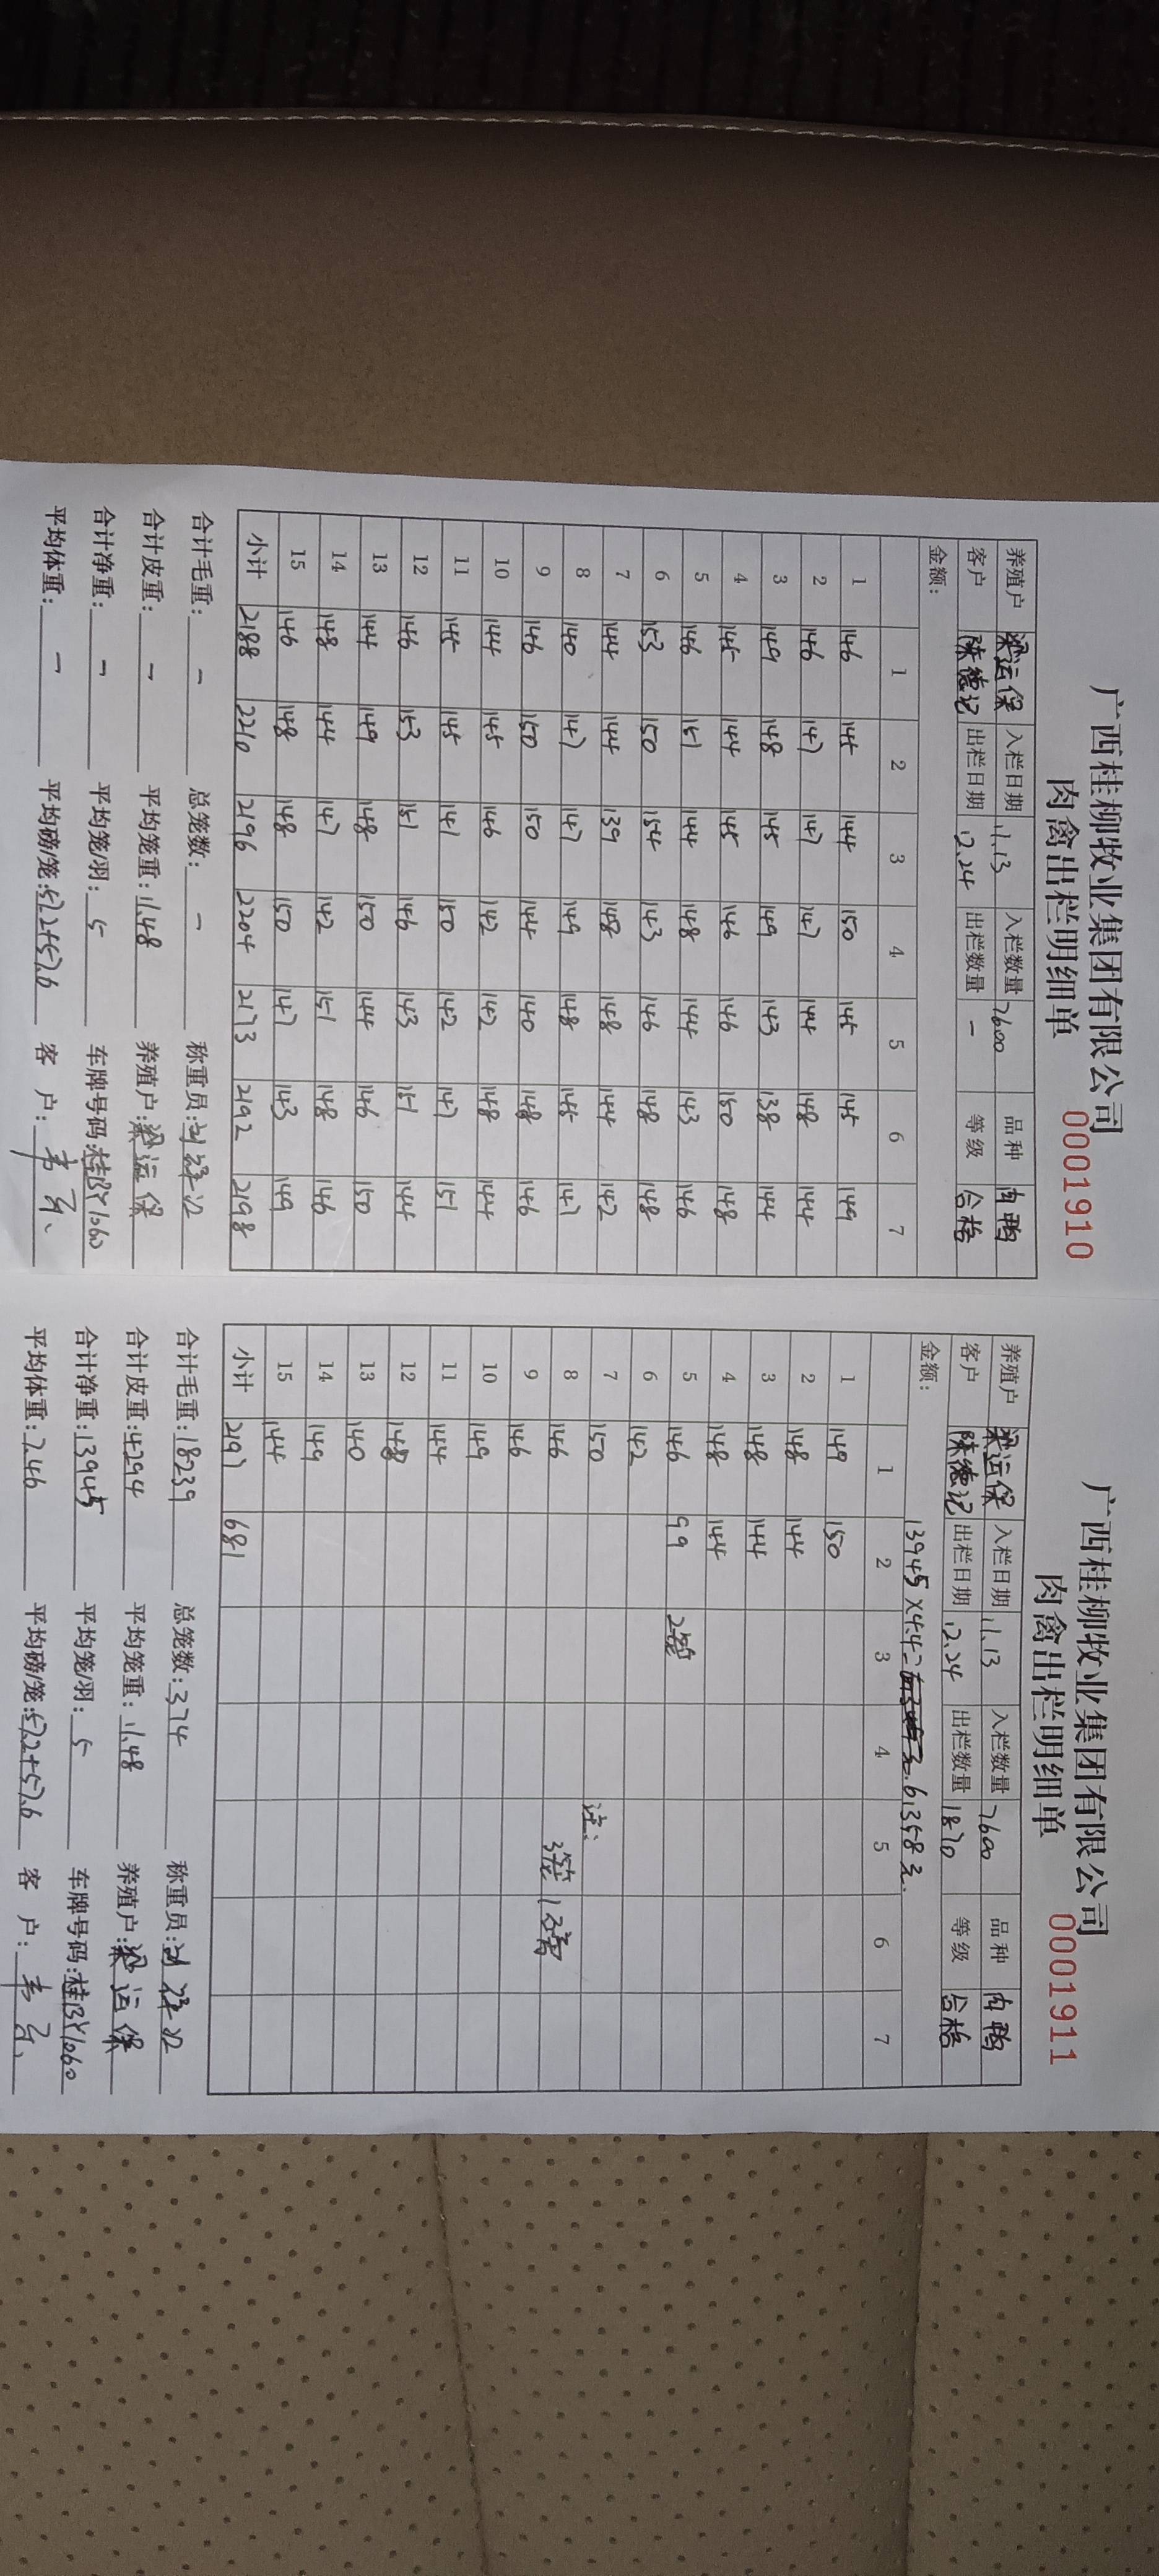 广西桂柳牧业集团有限公司
肉禽出栏明细单 0001910
养殖户 梁运保 入栏日期 11.13 入栏数量 7600 品种 肉鸭
客户 陈德记 出栏日期 12.24 出栏数量 - 等级 合格
金额：
1 2 3 4 5 6 7
1 146 145 144 150 145 145 149
2 146 147 147 147 144 148 144
3 149 148 145 149 143 138 144
4 145 144 145 146 146 150 148
5 146 151 144 148 144 143 146
6 153 150 154 143 146 148 148
7 144 144 139 148 148 144 142
8 140 147 147 149 148 145 147
9 146 150 150 144 140 148 146
10 144 145 146 142 142 148 144
11 145 145 141 150 142 147 151
12 146 153 151 146 143 151 144
13 144 149 148 150 144 146 150
14 148 144 147 142 151 148 146
15 146 148 148 150 147 143 149
小计 2188 2210 2196 2204 2173 2192 2198
合计毛重：- 总笼数：- 称重员：
合计皮重：- 平均笼重：11.48 养殖户：梁运保
合计净重：- 平均笼/羽：5 车牌号码：桂BY1060
平均体重：- 平均磅/笼：57.2+57.6 客 户：
广西桂柳牧业集团有限公司
肉禽出栏明细单 0001911
养殖户 梁运保 入栏日期 11.13 入栏数量 7600 品种 肉鸭
客户 陈德记 出栏日期 12.24 出栏数量 1870 等级 合格
金额： 13945×4.4= 61358元.
1 2 3 4 5 6 7
1 149 150
2 148 144
3 148 144
4 148 144
5 146 99 2笼
6 142
7 150 注：
8 146 3笼
9 146
10 149
11 144
12 148
13 140
14 149
15 144
小计 2197 681
合计毛重：18239 总笼数：374 称重员：
合计皮重：4294 平均笼重：11.48 养殖户：梁运保
合计净重：13945 平均笼/羽：5 车牌号码：桂BY1060
平均体重：7.46 平均磅/笼：57.2+57.6 客 户：